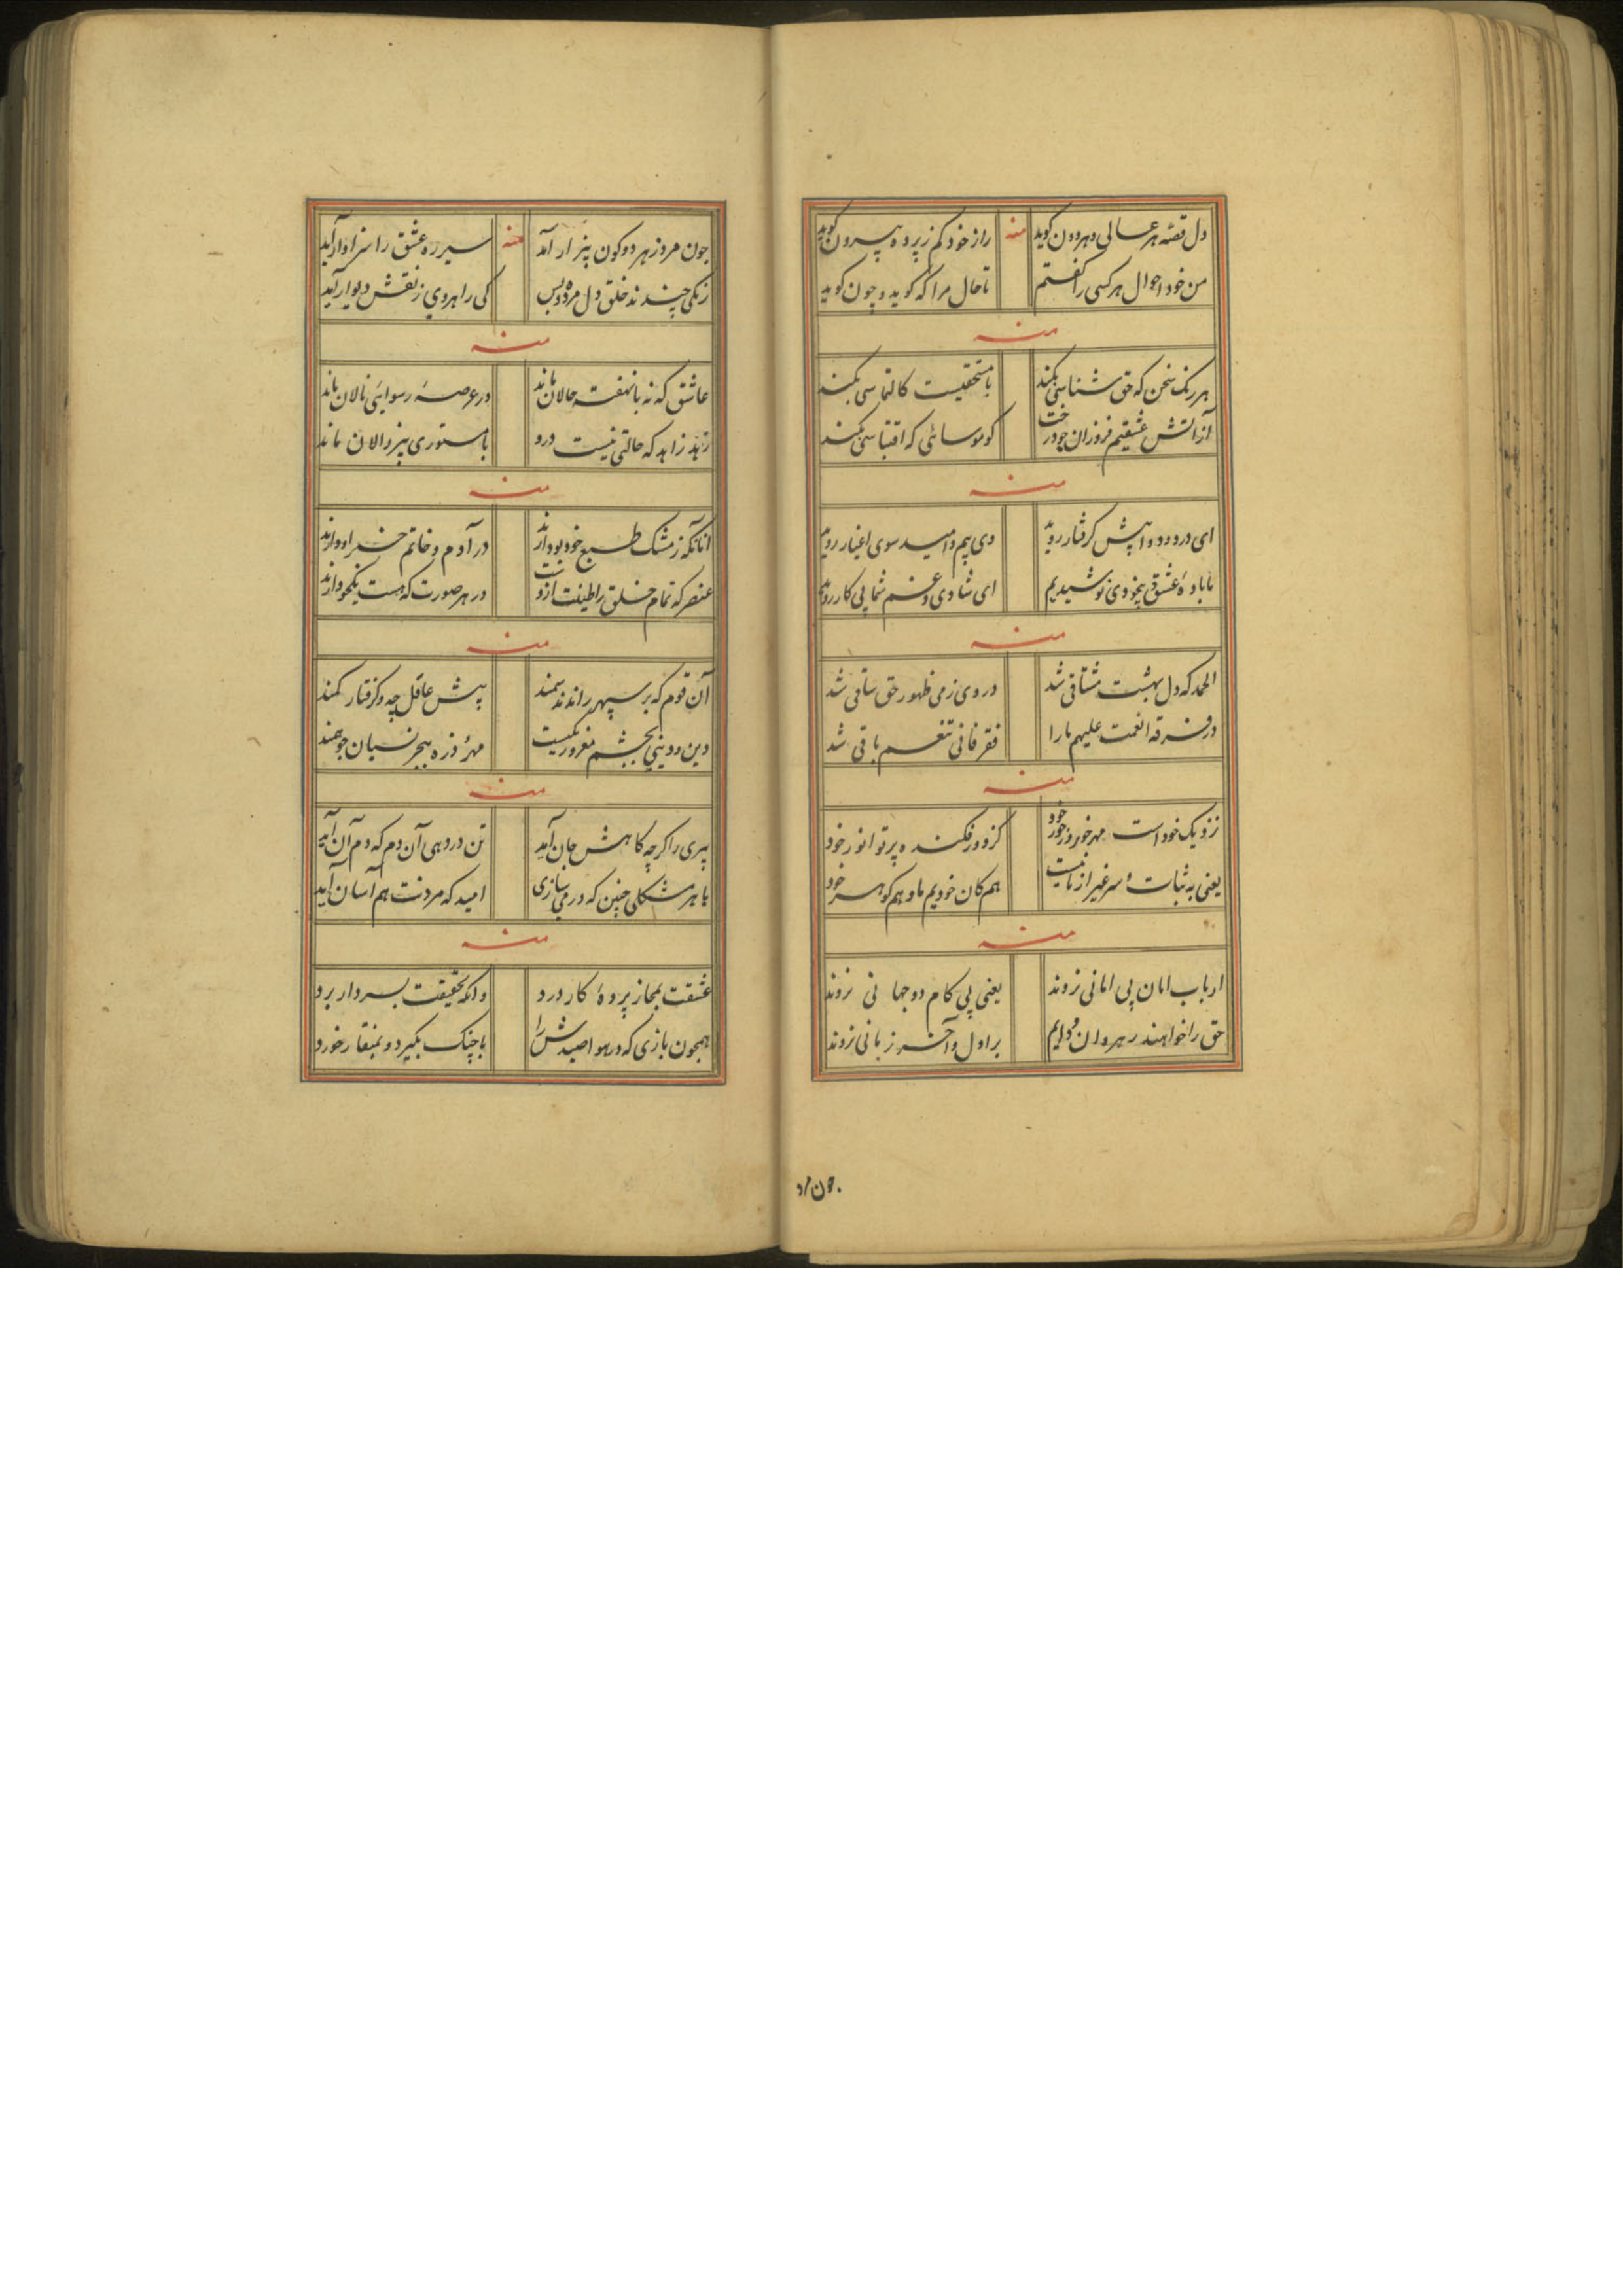 دل قصّه هر عالی و هر دون کوید
منه
راز خود کم ز پرده بیرون کوید
من خود احوال هر کسی را گفتم
تا حال مرا که کوید و چون کوید
منه
هر رنک سخن که حق شناسی نکند
با مستحقیست کالتماسی نکند
از آتش عشقیم فروزان چو درخت
کو موسائی که اقتباسی نکند
منه
ای درد و دوا پیش گرفتار روید
وی بیم و امید سوی اغیار روید
ما بادهٔ عشق بیخودی نوشیدیم
ای شادی و غم شما پی کار روید
منه
الحمد که دل بهشت مشتاقی شد
در وی ز می ظهور حق ساقی شد
در فرقه انعمت علیهم ما را
فقر فانی تنعم باقی شد
منه
نزدیک خود است مهر خور در خور خود
کز دور فکنده پرتو انور خود
یعنی به ثبات و سر غیر از ما نیست
هم کان خودیم ما و هم کوهر خود
منه
ارباب امان پی امانی نروند
یعنی پی کام دو جهانی نروند
حق را خواهند رهروان دایم
بر اول و آخر زبانی نروند
چون مرد
چون مرد ز هر دو کون بیزار آمد
منه
سیر ره عشق را سزاوار آید
زنکی چندند خلق دل مرده و بس
کی راهروی ز نقش دیوار آید
منه
عاشق که نه با نهفته حالان ماند
در عرصهٔ رسوایی نالان ماند
زهد زاهد که حالتی نیست درو
با مستوری پیر زالان ماند
منه
آنانکه ز مشک طبع خود بو دارند
در آدم و خاتم خبر او دارند
عنصر که تمام خلق را طینت ازوست
در هر صورت که هست نیکو دارند
منه
آن قوم که بر سپهر راندند سمند
پیش عاقل چه و گرفتار کمند
دین دو بینی بچشم مغرور یکیست
مهر و ذره ببحر نسیان جو هند
منه
پیری را کرچه کاهش جان آمد
تن در دهی آن دم که دم آن آید
با هر مشکلی چنین که در می سازی
امید که مردنت هم آسان آید
منه
عشقت بمجاز پردهٔ کار درد
وانکه بحقیقت بسر دار برد
همچون بازی که در هوا صیدش را
با چنک بگیرد و بمنقار خورد